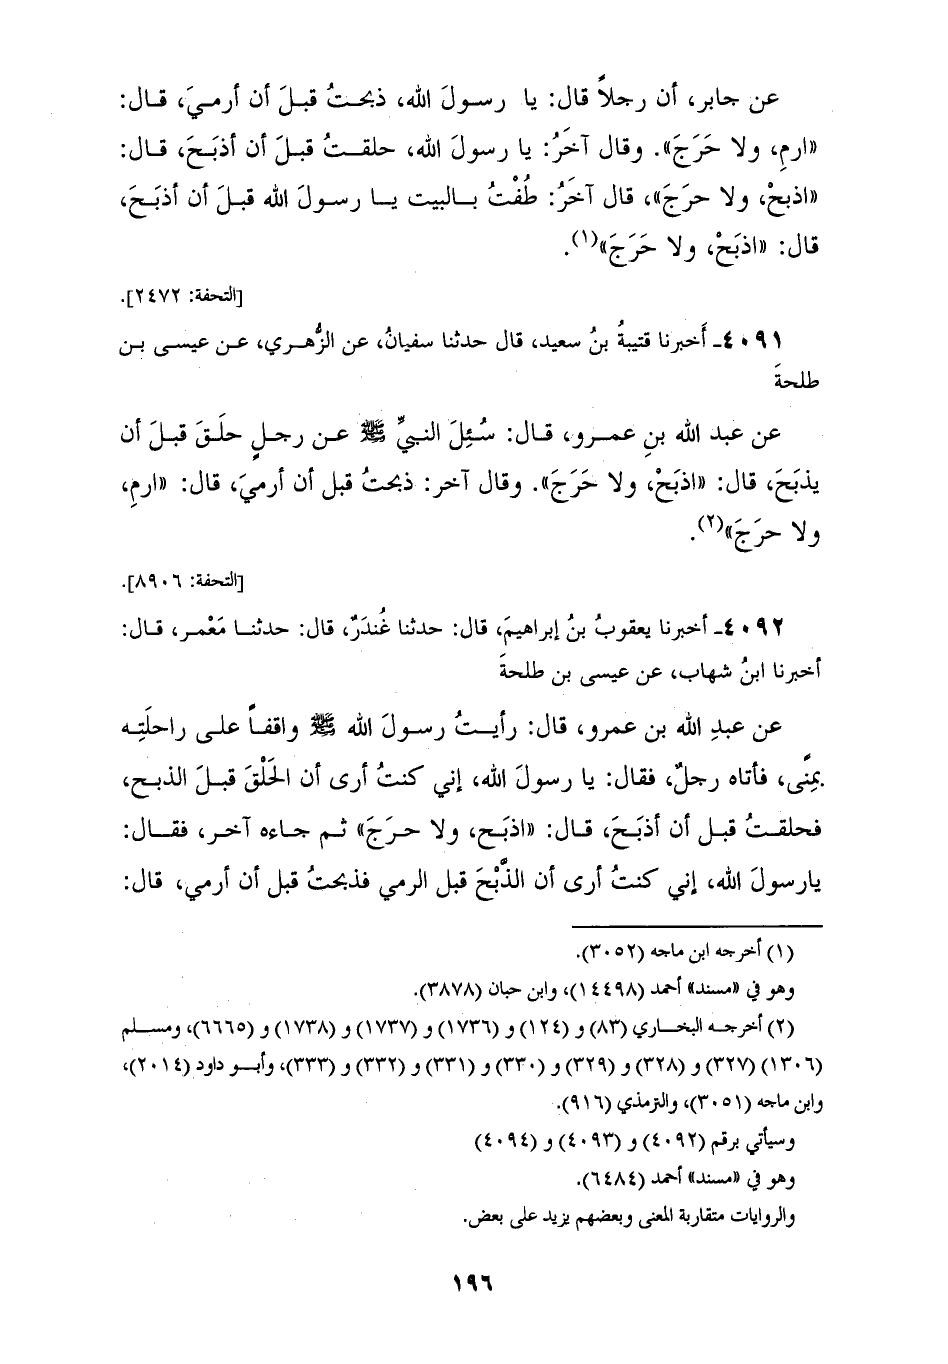 عن جابر، أن رجلاً قال: يا رسولَ الله، ذبحتُ قبلَ أن أرميَ، قال:
«ارمِ، ولا حَرَجَ». وقال آخَرُ: يا رسولَ الله، حلقتُ قبلَ أن أذبَحَ، قال:
«اذبحْ، ولا حرَجَ»، قال آخَرُ: طُفْتُ بالبيت يا رسولَ الله قبلَ أن أذبَحَ،
قال: «اذبَحْ، ولا حَرَجَ»(١).
[التحفة: ٢٤٧٢].
٤٠٩١ـ أَخبرنا قتيبةُ بنُ سعيد، قال حدثنا سفيانُ، عن الزُّهري، عن عيسى بن
طلحةَ
عن عبد الله بنِ عمرو، قال: سُئِلَ النبيُّ ﷺ عن رجلٍ حلَقَ قبلَ أن
يذبَحَ، قال: «اذبَحْ، ولا حَرَجَ». وقال آخر: ذبحتُ قبل أن أرميَ، قال: «ارمِ،
ولا حرَجَ»(٢).
[التحفة: ٨٩٠٦].
٤٠٩٢ـ أخبرنا يعقوبُ بنُ إبراهيمَ، قال: حدثنا غُندَرٌ، قال: حدثنا مَعْمر، قال:
أخبرنا ابنُ شهاب، عن عيسى بن طلحةَ
عن عبدِ الله بن عمرو، قال: رأيتُ رسولَ الله ﷺ واقفاً على راحلَتِه
بمِنًى، فأتاه رجلٌ، فقال: يا رسولَ الله، إني كنتُ أرى أن الحَلْقَ قبلَ الذبح،
فحلقتُ قبل أن أذبَحَ، قال: «اذبَح، ولا حرَجَ» ثم جاءه آخر، فقال:
يارسولَ الله، إني كنتُ أرى أن الذَّبْحَ قبل الرمي فذبحتُ قبل أن أرمي، قال:
(١) أخرجه ابن ماجه (٣٠٥٢).
وهو في «مسند» أحمد (١٤٤٩٨)، وابن حبان (٣٨٧٨).
(٢) أخرجه البخاري (٨٣) و (١٢٤) و (١٧٣٦) و (١٧٣٧) و (١٧٣٨) و (٦٦٦٥)، ومسلم
(١٣٠٦) (٣٢٧) و (٣٢٨) و (٣٢٩) و (٣٣٠) و (٣٣١) و (٣٣٢) و (٣٣٣)، وأبو داود (٢٠١٤)،
وابن ماجه (٣٠٥١)، والترمذي (٩١٦).
وسيأتي برقم (٤٠٩٢) و (٤٠٩٣) و (٤٠٩٤)
وهو في «مسند» أحمد (٦٤٨٤).
والروايات متقاربة المعنى وبعضهم يزيد على بعض.
١٩٦